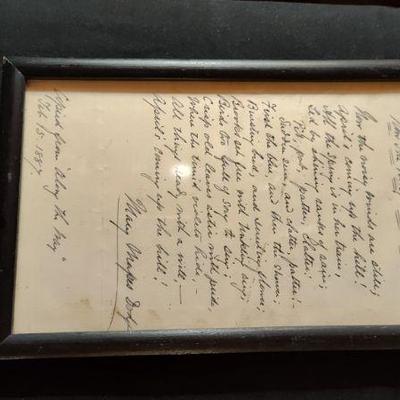 Now the noisy winds are still;
April's coming up the hill!
All the spring is in her train,
Led by shining ranks of rain;
Pit, pat, patter, clatter,
Sudden sun, and clatter, patter!—
First the blue, and then the shower;
Bursting bud, and smiling flower;
Brooks set free with tinkling ring;
Birds too full of song to sing;
Crisp old leaves astir with pride,
Where the timid violets hide,—
All things ready with a will,—
April's coming up the hill!
Mary Mapes Dodge
Copied from "Along the Way"
Feb. 15. 1887.